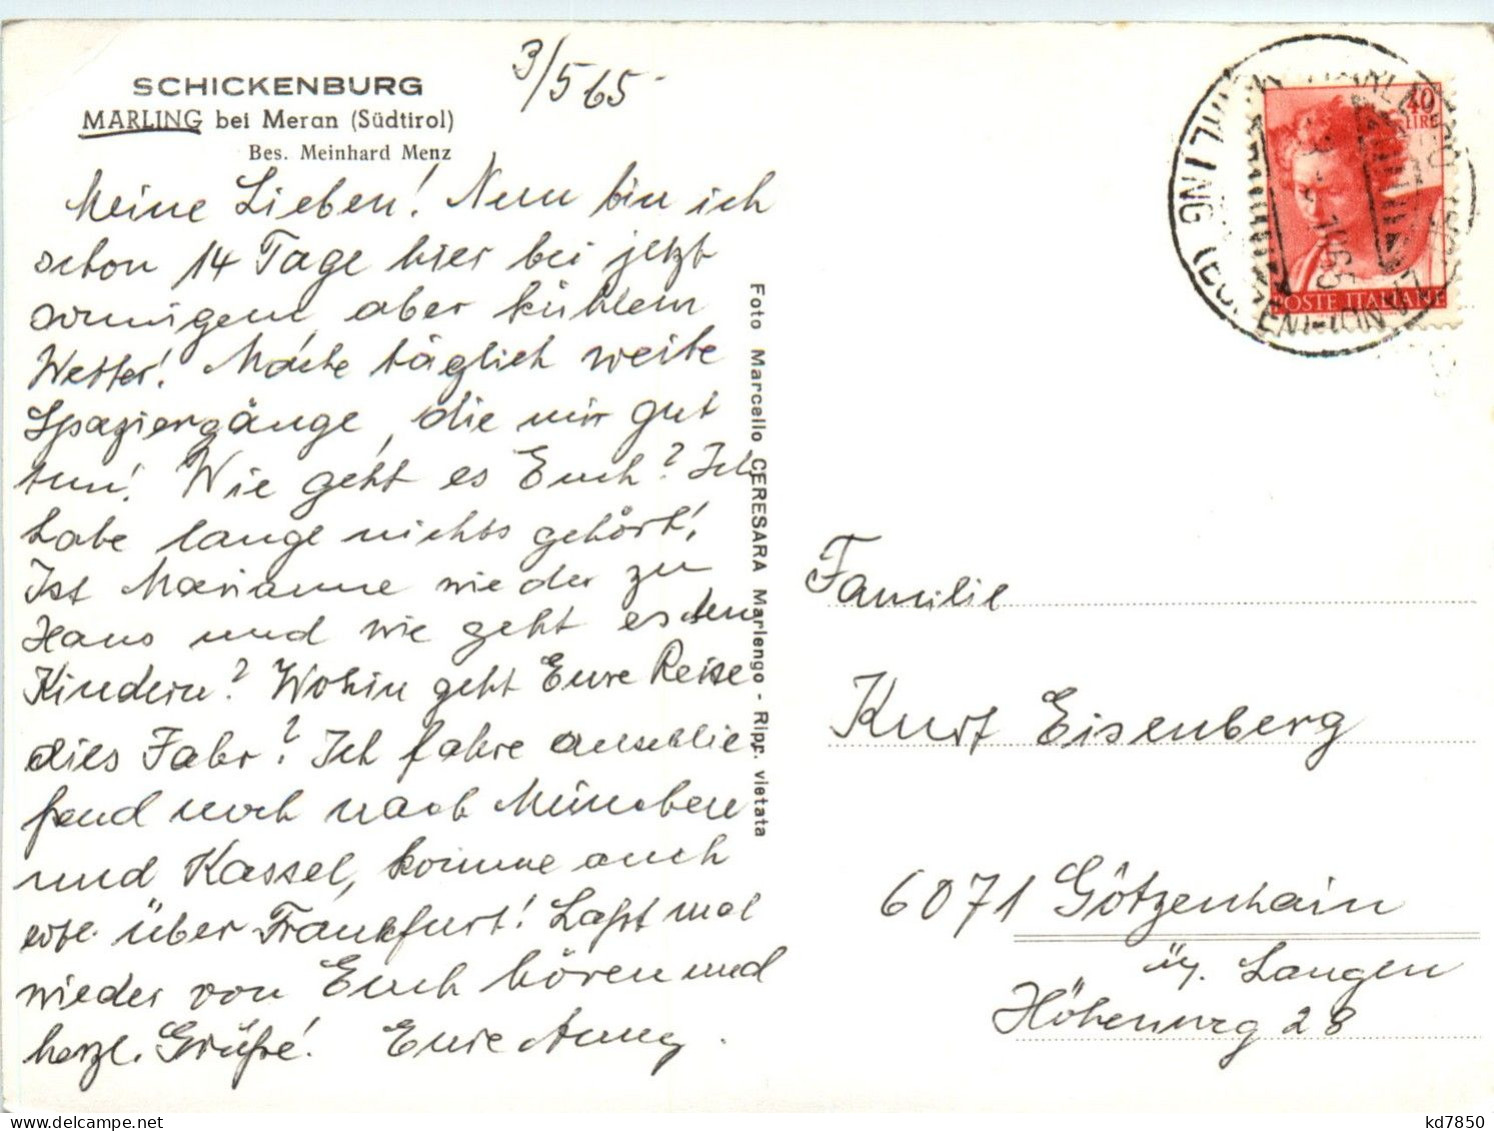 3/5 65
SCHICKENBURG
MARLING bei Meran (Südtirol)
Bes. Meinhard Menz
Meine Lieben! Nun bin ich
schon 14 Tage hier bei jetzt
sonnigem aber kühlem
Wetter! Mache täglich weite
Spaziergänge, die mir gut
tun! Wie geht es Euch? Ich
habe lange nichts gehört!
Ist Marianne wieder zu
Haus und wie geht es den
Kindern? Wohin geht Eure Reise
dies Jahr? Ich fahre anschlie
ßend noch nach München
und Kassel, komme auch
evtl. über Frankfurt! Laßt mal
wieder von Euch hören und
herzl. Grüße! Eure Anny.
Foto Marcello CERESARA Marlengo - Ripr. vietata
40
LIRE
POSTE ITALIANE
Familie
Kurt Eisenberg
6071 Götzenhain
ü/. Langen
Höhenweg 28
kd7850